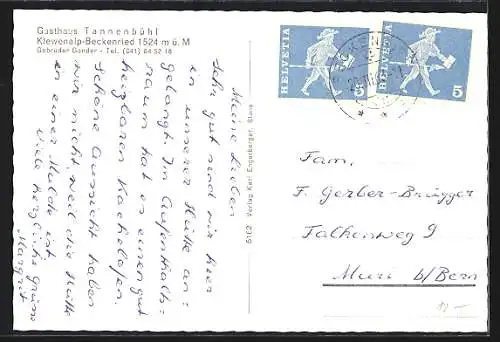 Gasthaus Tannenbühl
Klewenalp-Beckenried 1524 m ü. M
Gebrüder Gander - Tel. (041) 84 52 18
Meine Lieben
Sehr gut sind wir hier
in unserer Hütte an=
gelangt. Im Aufenthalts=
raum hat es einen gut
heizbaren Kachelofen.
Schöne Aussicht haben
wir nicht, weil die Hütte
in einer Mulde ist.
Viele herzliche Grüsse
Margrit
5162 Verlag Karl Engelberger, Stans
HELVETIA 5
HELVETIA 5
Fam.
F. Gerber-Brügger
Falkenweg 9
Muri b/Bern